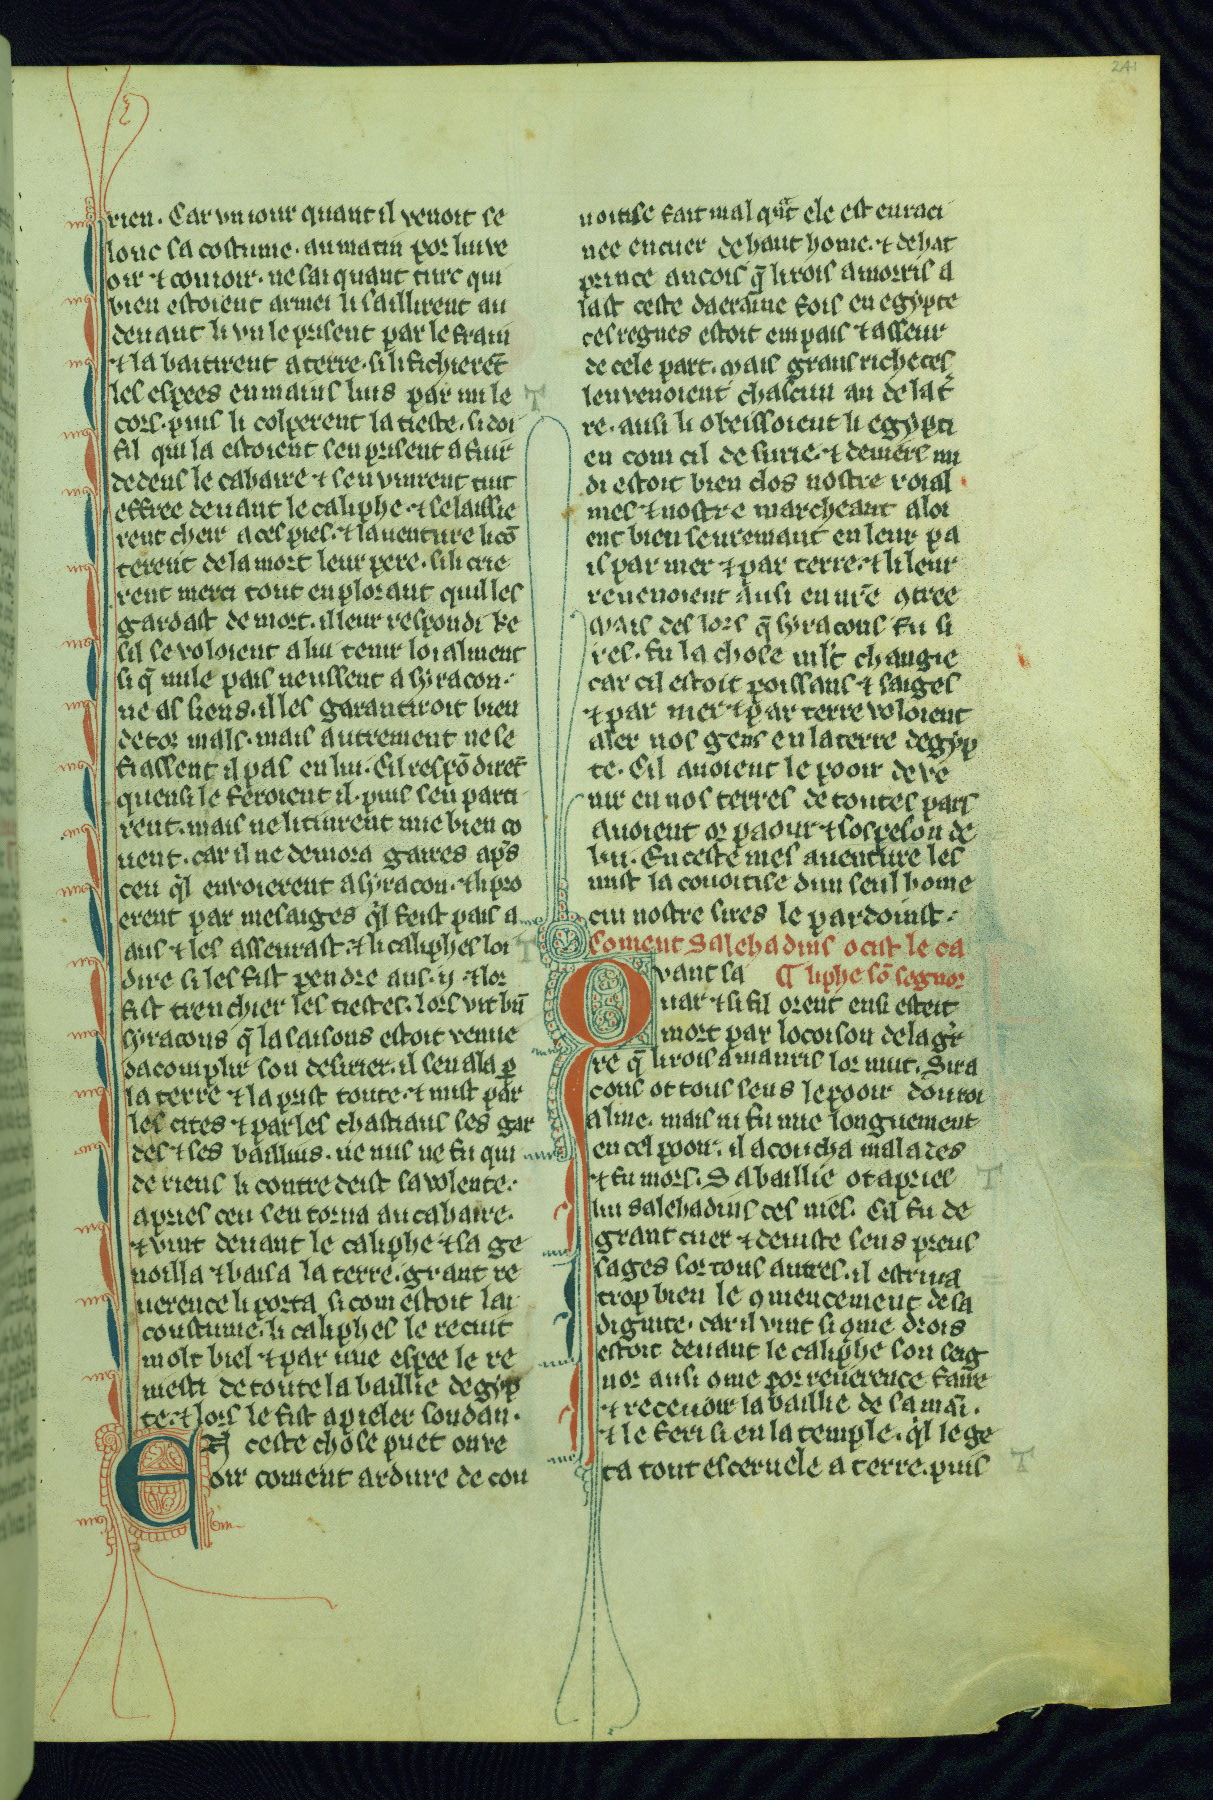 241
rien. Car un iour quant il venoit se
lonc sa costume. au matin por lui ve
oir ⁊ conioir. ne sai quant turc qui
bien estoient armei li saillirent au
deuant li un le prisent par le frain
⁊ la batirent a terre. si li fichierēt
les espees en mains luis par mi le
cors. puis li colperent la tieste. si doi
fil qui la estoient sen prisent a fuir
dedens le cabaire ⁊ sen vinrent tuit
effree deuant le caliphe. ⁊ se laissie
rent cheir a ces pies. ⁊ lauenture li cō
terent de la mort leur pere. si li crie
rent merci tout en plorant quil les
gardast de mort. il leur respondi ke
sil se voloient a lui tenir loialment
si q̄ nule pais neussent a syracon.
ne as siens. il les garantiroit bien
de tor mals. mais autrement ne se
fiassent il pas en lui. Cil respōdirēt
quensi le feroient il. puis sen parti
rent. mais ne li tinrent mie bien co
uent. car il ne demora gaires ap̄s
ceu q̄l enuoierent a syracon. ⁊ li pro
erent par mesaiges q̄l feist pais a
aus ⁊ les asseurast. ⁊ li caliphes loi
dire si les fist pendre aus .ii. ⁊ lor
fist trenchier les tiestes. lors vit bn̄
syracous q̄ la saisons estoit venue
dacomplir son desirier. il sen ala p̱
la terre ⁊ la prist toute. ⁊ mist par
les cites ⁊ par les chastiaus ses gar
des ⁊ ses baillius. ne nus ne fu qui
de riens li contredeist sa volente.
apries ceu sen torna au cabaire.
⁊ vint deuant le caliphe ⁊ sa ge
noilla ⁊ baisa la terre. grant re
uerence li porta si com estoit lai
coustume. li caliphes le recuit
molt biel ⁊ par une espee le re
mesti de toute la baillie degyp
te. ⁊ lors le fist apieler soudan.
En ceste chose puet on ve
oir coment ardure de cou
uoitise fait mal qu̅t ele est enraci
nee en cuer de haut home. ⁊ de hat
prince ancois q̄ li rois amorris a
last ceste daeraine fois en egypte
ces regnes estoit em pais ⁊ asseur
de cele part. mais grans richeces
len venoient chascun an de la t̄
re. ausi li obeissoient li egypti
en com cil de surie. ⁊ deuers mi
di estoit bien clos nostre roial
mes ⁊ nostre marcheant aloi
ent bien seuremant en leur pa
is par mer ⁊ par terre. ⁊ li leur
reuenoient ausi en nr̄e ꝯtree
mais des lors q̄ syracous fu si
res. fu la chose ml̄t changie
car cil estoit poissans ⁊ saiges
⁊ par mer ⁊ par terre voloient
aler nos gens en la terre degyp
te. Cil auoient le pooir de ve
nir en nos terres de toutes pars
auoient or paour ⁊ sospeson de
lui. En ceste mes auenture les
mist la couoitise dun seul home
cui nostre sires le pardoinst.
Coment Salehadins ocist le ca
liphe sō segnor
Qvant sa
uar ⁊ si fil orent ensi esteit
mort par locoison de la gr̄
re q̄ li rois amauris lor mut. Sira
cous ot tous seus le pooir dou roi
alme. mais ni fu mie longuement
en cel pooir. il acoucha malades
⁊ fu mors. Sa baillie ot apries
lui salehadins ces niés. Cil fu de
grant cuer ⁊ deuiste sens preus
sages sor tous autres. il estriua
trop bien le ꝯmencement de sa
dignite. car il vint si ꝯme drois
estoit deuant le caliphe son seig
nor ausi ꝯme por reuerence faire
⁊ receuoir la baillie de sa maī.
⁊ le feri si en la temple. q̄l le ge
ta tout esceruele a terre. puis